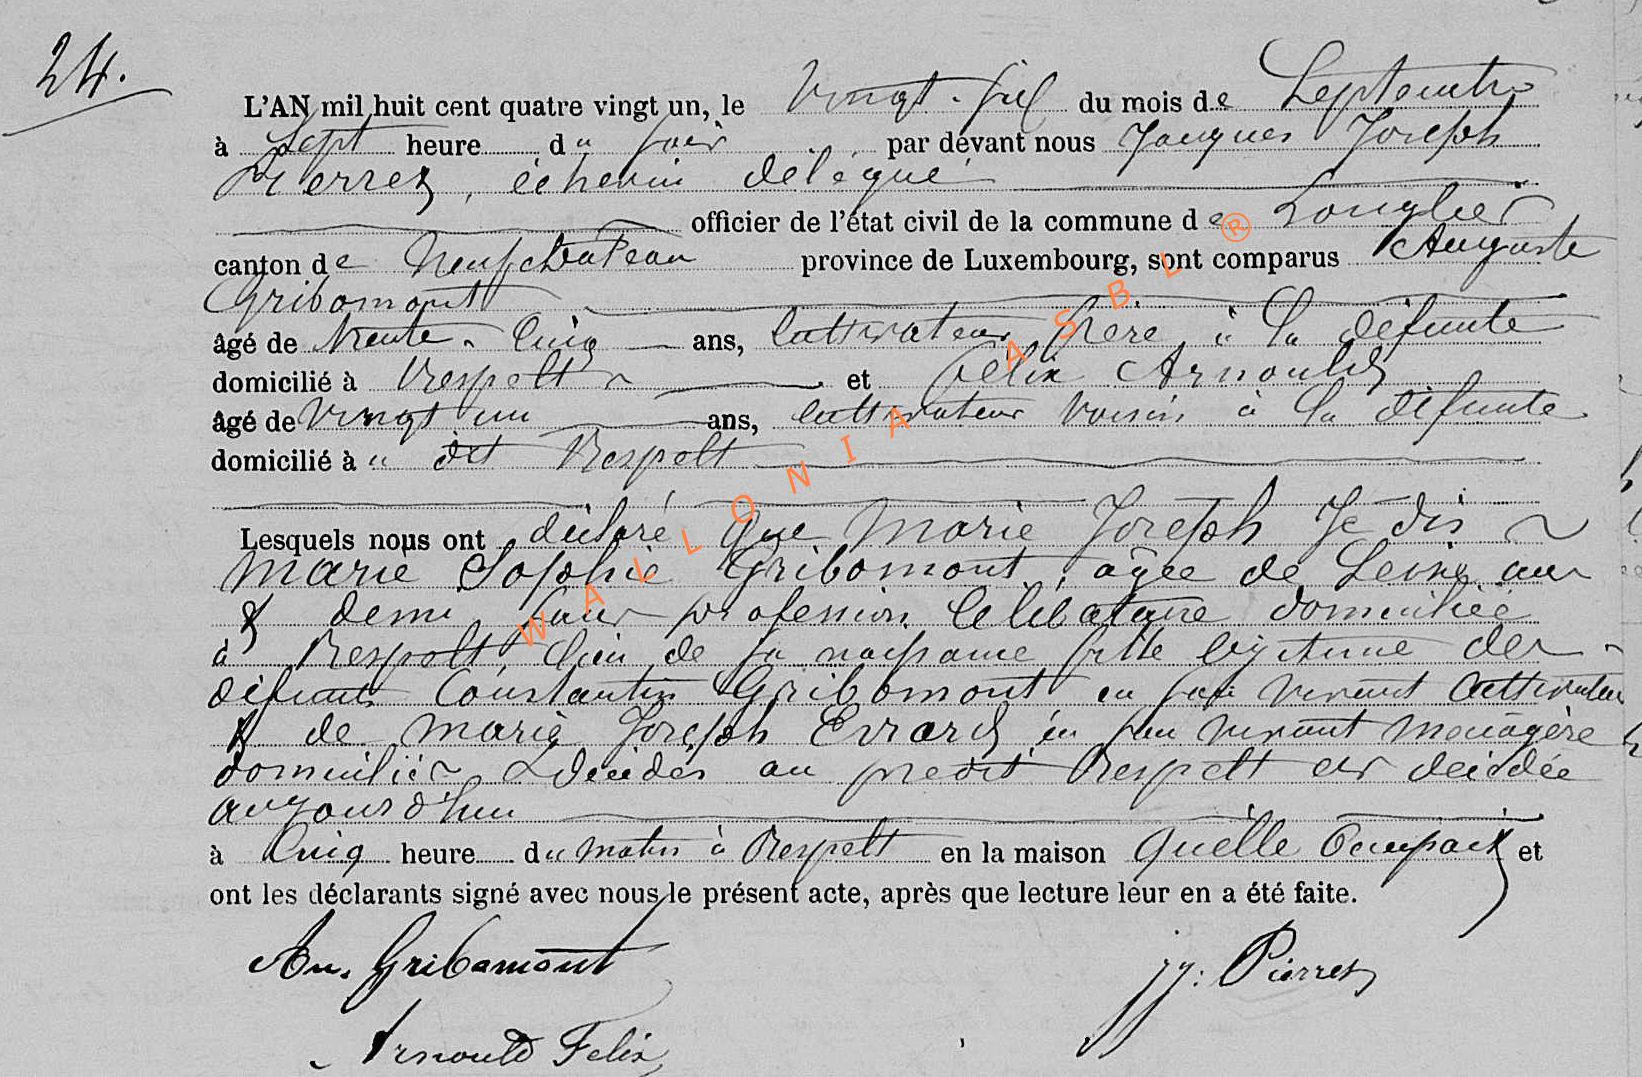 24.
L'AN mil huit cent quatre vingt un, le Vingt-six du mois de Septembre
à Sept heure du soir par devant nous Jacques Joseph
Pierret, échevin délégué
officier de l'état civil de la commune de Longlier
canton de Neufchateau province de Luxembourg, sont comparus Auguste
Gribomont
âgé de trente-cinq ans, cultivateur, frère à la défunte
domicilié à Respelt et Félix Arnould
âgé de vingt un ans, cultivateur voisin à la défunte
domicilié à u dit Respelt
Lesquels nous ont déclaré que Marie Joseph Je dis
Marie Sophie Gribomont, âgée de Seize ans
& demi, sans profession Célibataire domiciliée
à Respelt, lieu de sa naissance fille légitime des
défunts Constantin Gribomont en son vivant Cultivateur
& de Marie Joseph Errard, en son vivant Ménagère
domiciliés & décédés au prédit Respelt est décédée
aujourd'hui
à Cinq heure du matin à Respelt en la maison quelle Occupait et
ont les déclarants signé avec nous le présent acte, après que lecture leur en a été faite.
Au. Gribomont JJ: Pierret
Arnould Felix
WALLONIA ASBL ®